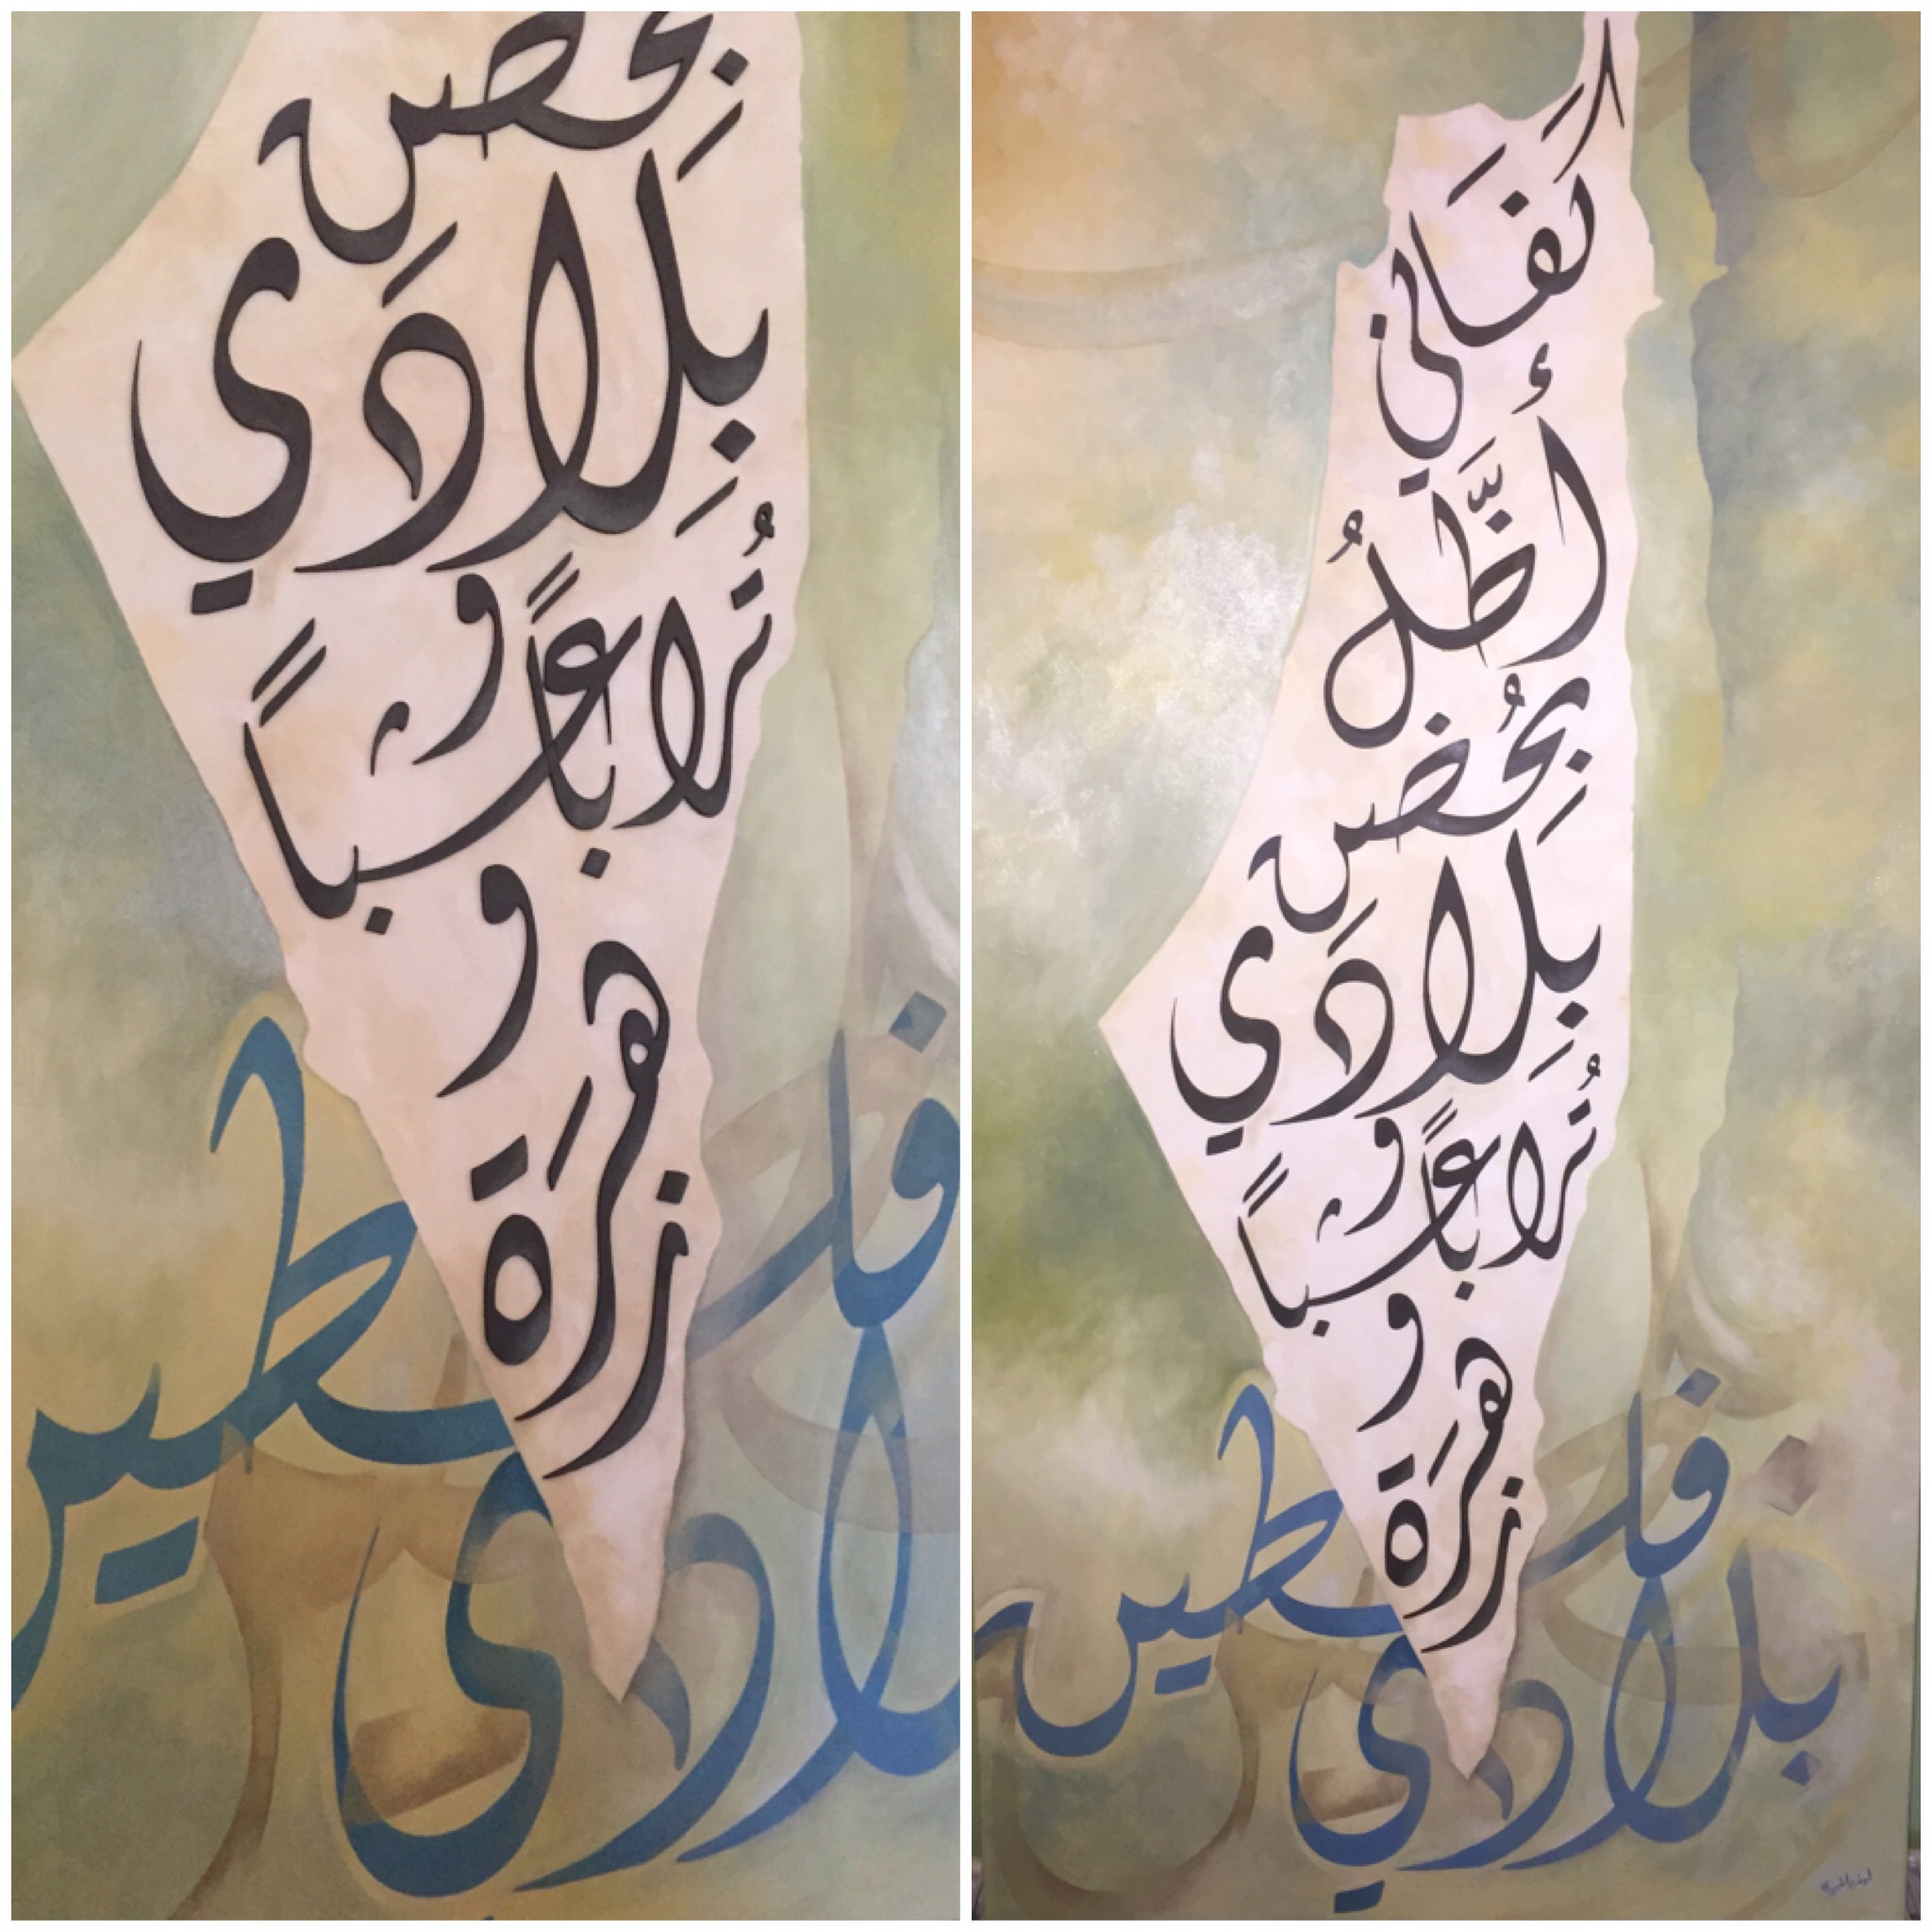 بحضن
بِلَادِي
تُراباً و
عشباً
و
زهَرة
فلسطين
بلادي
كَفَاني
أظَّلُ
بحُضن
بِلَادِي
تُراباً و
عشباً
و
زهَرة
فلسطين
بلادي